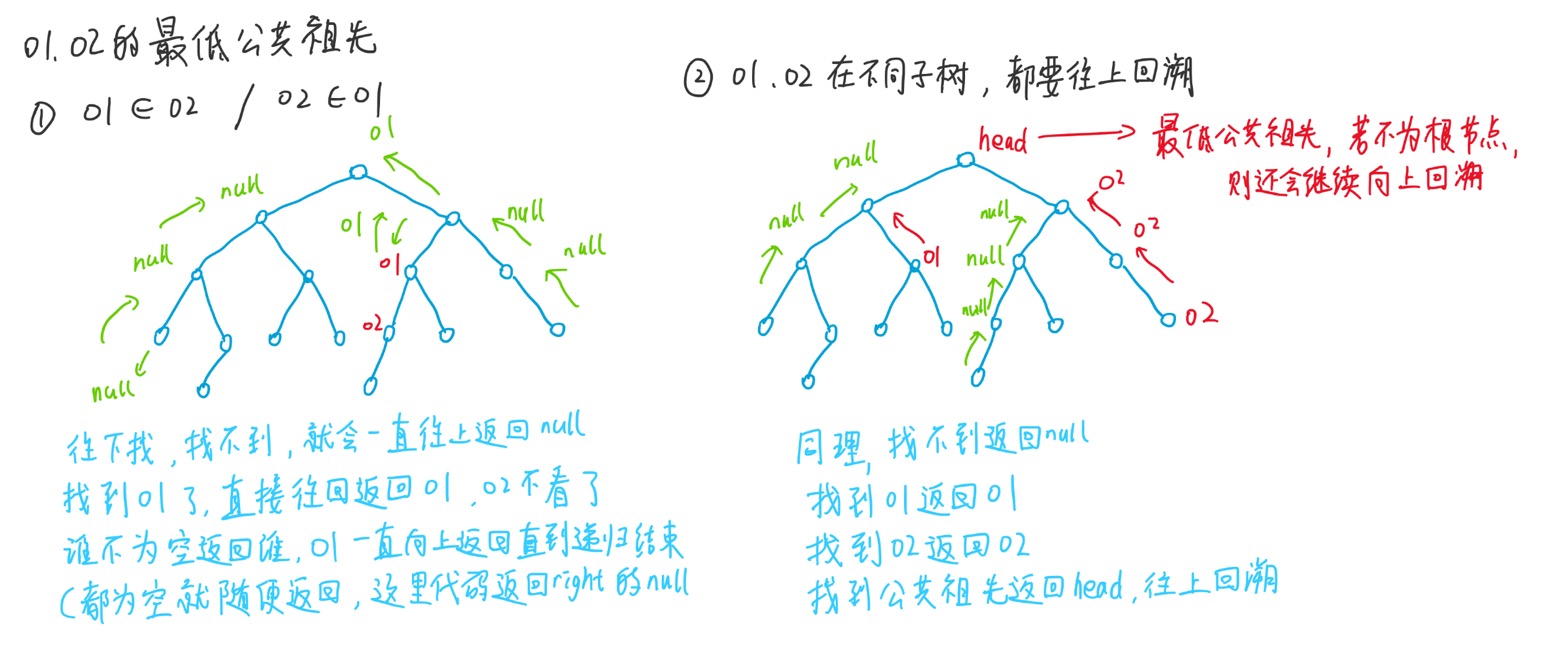 01.02的最低公共祖先
① 01∈02 / 02∈01
01
null
null
null
01
01
02
null
null
往下找,找不到,就会一直往上返回null
找到01了,直接往回返回01,02不看了
谁不为空返回谁,01一直向上返回直到递归结束
(都为空就随便返回,这里代码返回right的null
② 01.02在不同子树,都要往上回溯
head
最低公共祖先,若不为根节点,
则还会继续向上回溯
null
null
01
null
null
null
02
02
02
同理,找不到返回null
找到01返回01
找到02返回02
找到公共祖先返回head,往上回溯